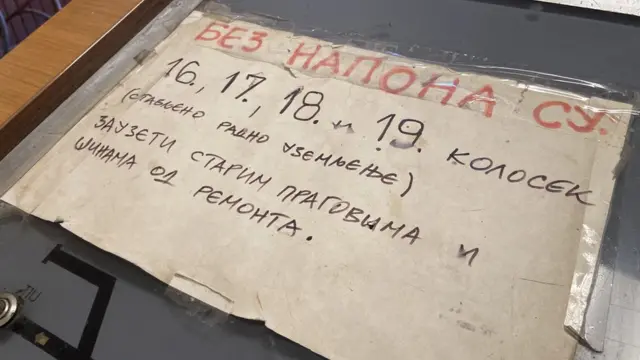 БЕЗ НАПОНА СУ.
16., 17., 18. и 19. КОЛОСЕК
(СТАВЉЕНО РАДНО УЗЕМЉЕЊЕ)
ЗАУЗЕТИ СТАРИМ ПРАГОВИМА И
ШИНАМА ОД РЕМОНТА.